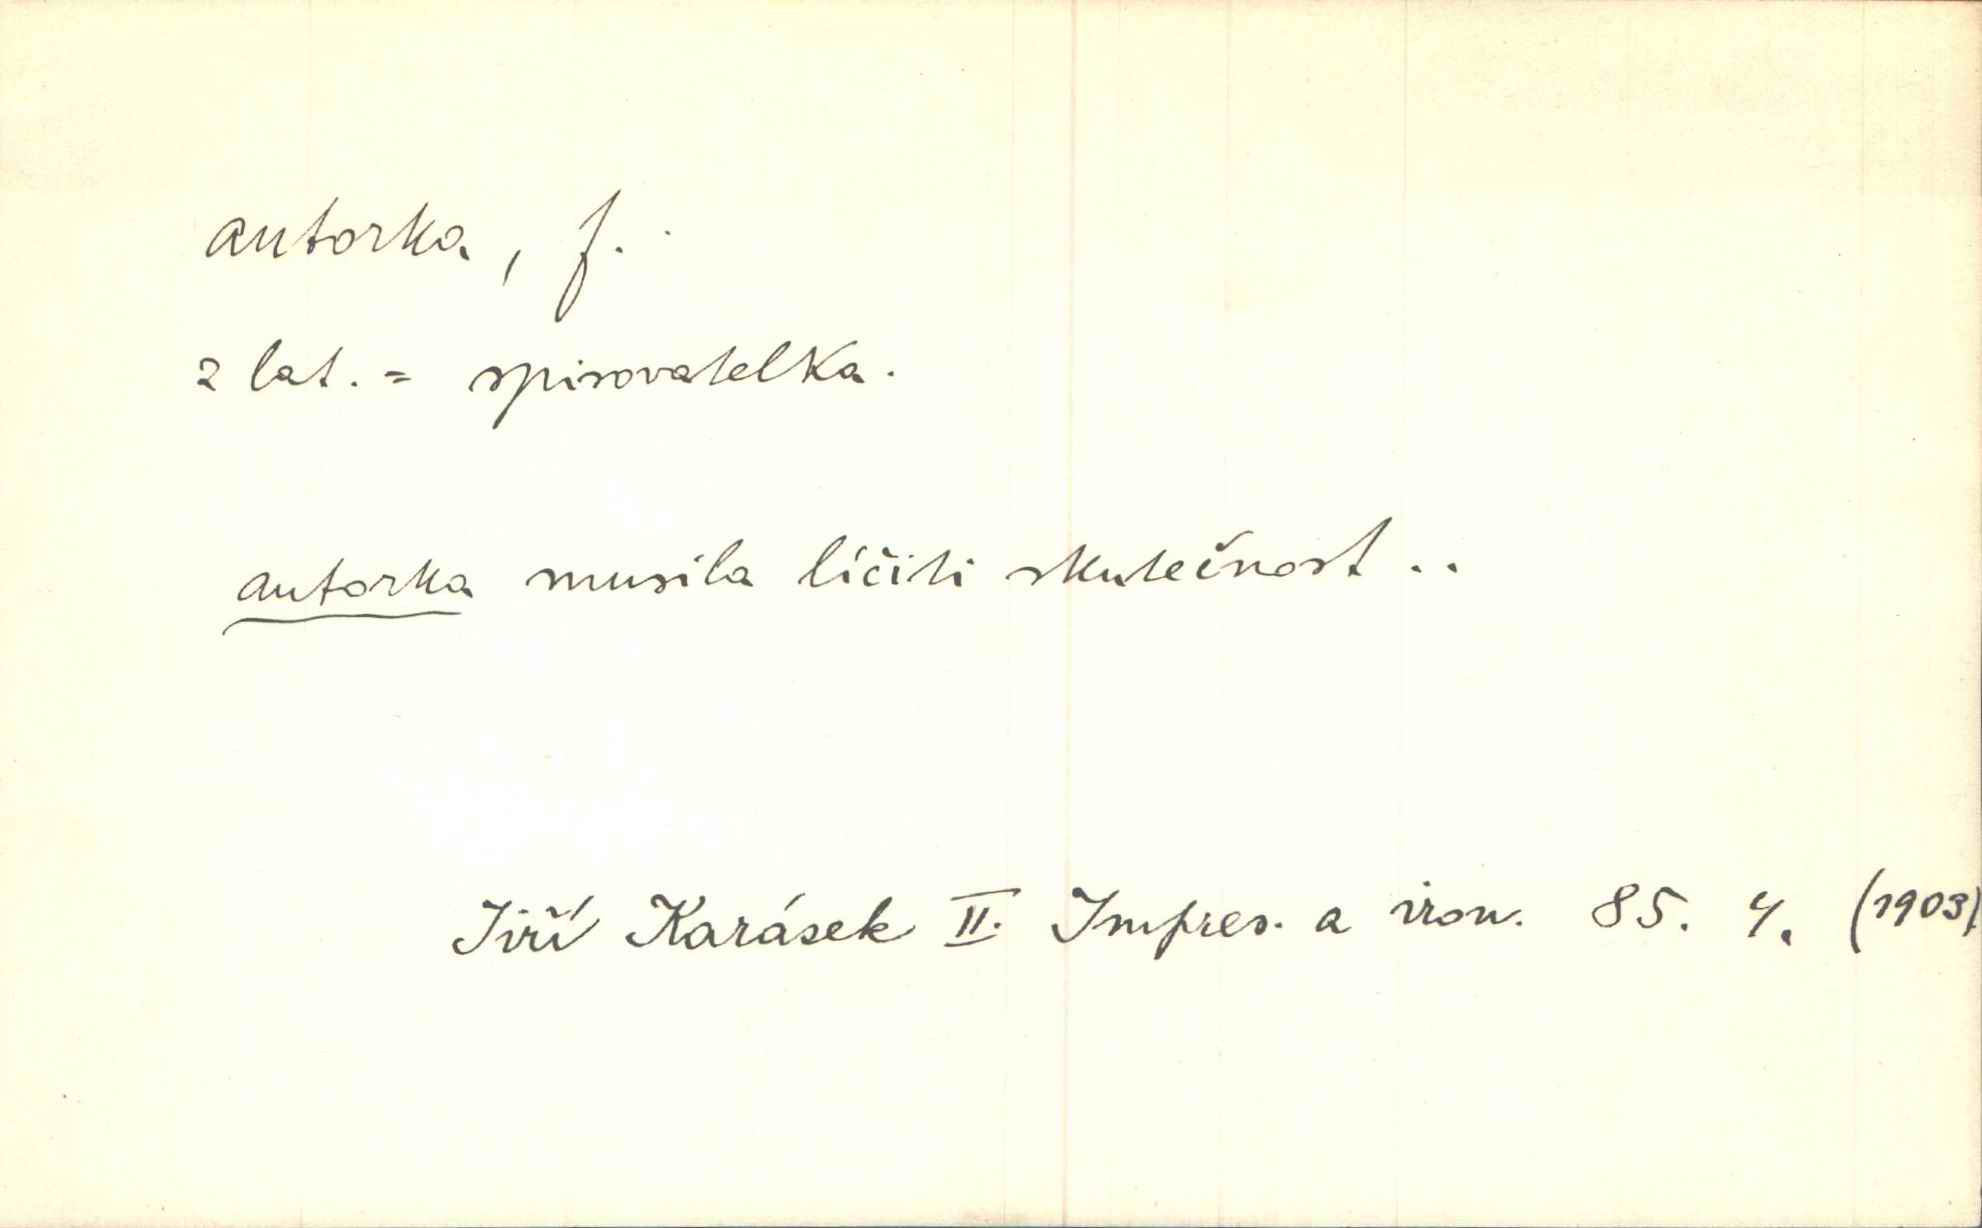 autorka, f.
z lat. = spisovatelka.
autorka musila líčiti skutečnost ..
Jiří Karásek II. Impres. a iron. 85. 4. (1903)